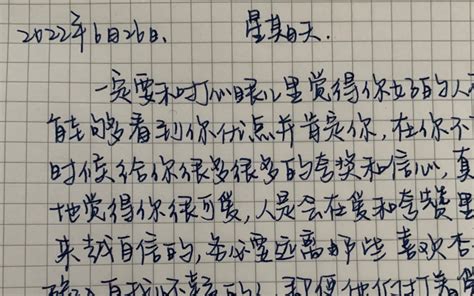 2022年6月26日. 星期天.
一定要和打心眼儿里觉得你好的人
能够看到你优点并肯定你,在你不
时候给你很多很多的夸奖和信心,真
地觉得你很可爱,人是会在爱和夸赞里
来越自信的,务必要远离那些喜欢否
你